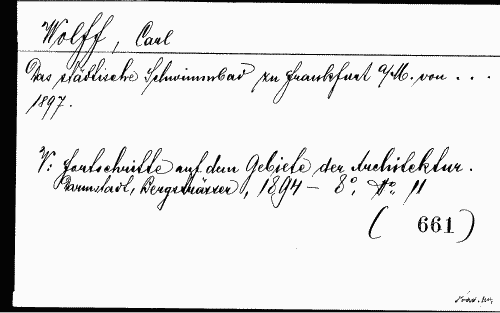 Wolff, Carl
Das städtische Schwimmbad zu Frankfurt a/M. von . . .
1897.
V: Fortschritte auf dem Gebiete der Architektur.
Darmstadt, Bergsträsser, 1894 – 8°, No. 11
( 661 )